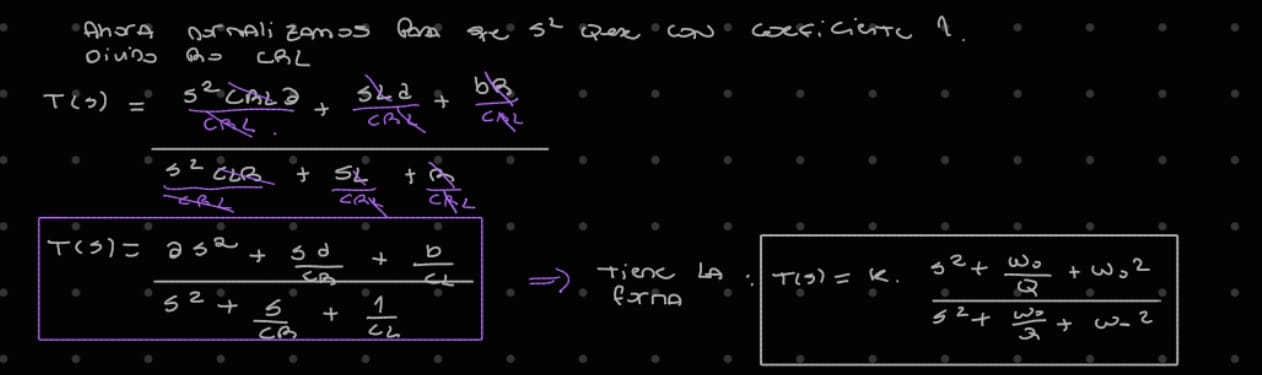 Ahora normalizamos para que s² quede con coeficiente 1.
Divido por CRL
T(s) = (s² CRL a / CRL + sLd / CRL + bR / CRL) / (s² CLR / CRL + sL / CRL + R / CRL)
T(s) = (a s² + s d / CR + b / CL) / (s² + s / CR + 1 / CL) ⇒ Tiene la forma : T(s) = K. (s² + ω₀ / Q + ω₀²) / (s² + ω₀ / Q + ω₀²)